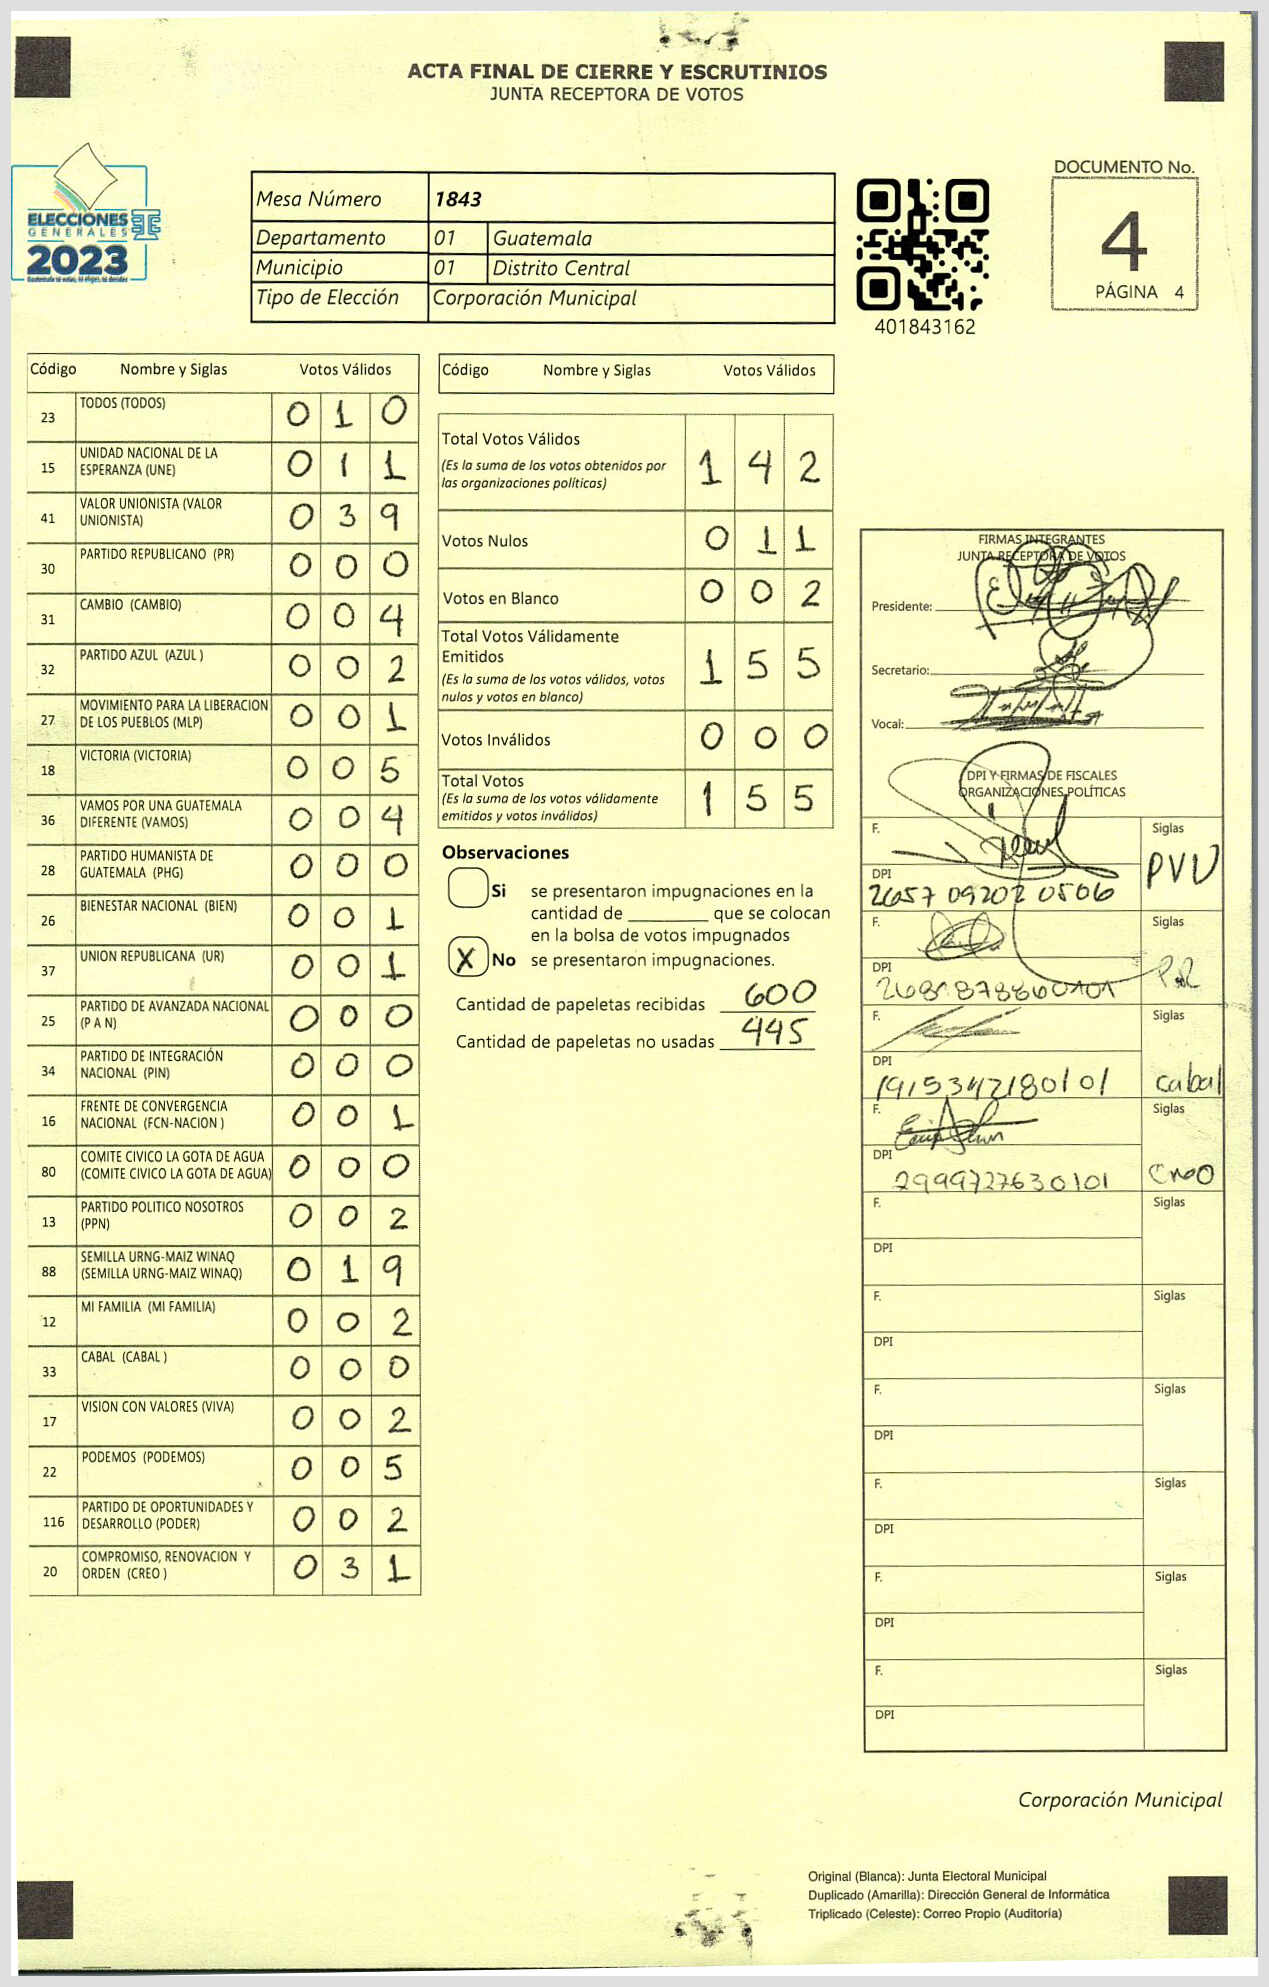 ACTA FINAL DE CIERRE Y ESCRUTINIOS
JUNTA RECEPTORA DE VOTOS
ELECCIONES
GENERALES
2023
Mesa Número 1843
Departamento 01 Guatemala
Municipio 01 Distrito Central
Tipo de Elección Corporación Municipal
401843162
DOCUMENTO No.
4
PÁGINA 4
Código Nombre y Siglas Votos Válidos
23 TODOS (TODOS) 0 1 0
15 UNIDAD NACIONAL DE LA
ESPERANZA (UNE) 0 1 1
41 VALOR UNIONISTA (VALOR
UNIONISTA) 0 3 9
30 PARTIDO REPUBLICANO (PR) 0 0 0
31 CAMBIO (CAMBIO) 0 0 4
32 PARTIDO AZUL (AZUL ) 0 0 2
27 MOVIMIENTO PARA LA LIBERACION
DE LOS PUEBLOS (MLP) 0 0 1
18 VICTORIA (VICTORIA) 0 0 5
36 VAMOS POR UNA GUATEMALA
DIFERENTE (VAMOS) 0 0 4
28 PARTIDO HUMANISTA DE
GUATEMALA (PHG) 0 0 0
26 BIENESTAR NACIONAL (BIEN) 0 0 1
37 UNION REPUBLICANA (UR) 0 0 1
25 PARTIDO DE AVANZADA NACIONAL
(P A N) 0 0 0
34 PARTIDO DE INTEGRACIÓN
NACIONAL (PIN) 0 0 0
16 FRENTE DE CONVERGENCIA
NACIONAL (FCN-NACION ) 0 0 1
80 COMITE CIVICO LA GOTA DE AGUA
(COMITE CIVICO LA GOTA DE AGUA) 0 0 0
13 PARTIDO POLITICO NOSOTROS
(PPN) 0 0 2
88 SEMILLA URNG-MAIZ WINAQ
(SEMILLA URNG-MAIZ WINAQ) 0 1 9
12 MI FAMILIA (MI FAMILIA) 0 0 2
33 CABAL (CABAL ) 0 0 0
17 VISION CON VALORES (VIVA) 0 0 2
22 PODEMOS (PODEMOS) 0 0 5
116 PARTIDO DE OPORTUNIDADES Y
DESARROLLO (PODER) 0 0 2
20 COMPROMISO, RENOVACION Y
ORDEN (CREO ) 0 3 1
Código Nombre y Siglas Votos Válidos
Total Votos Válidos
(Es la suma de los votos obtenidos por
las organizaciones políticas) 1 4 2
Votos Nulos 0 1 1
Votos en Blanco 0 0 2
Total Votos Válidamente
Emitidos
(Es la suma de los votos válidos, votos
nulos y votos en blanco) 1 5 5
Votos Inválidos 0 0 0
Total Votos
(Es la suma de los votos válidamente
emitidos y votos inválidos) 1 5 5
Observaciones
Si se presentaron impugnaciones en la
cantidad de ________ que se colocan
en la bolsa de votos impugnados
X No se presentaron impugnaciones.
Cantidad de papeletas recibidas 600
Cantidad de papeletas no usadas 445
FIRMAS INTEGRANTES
JUNTA RECEPTORA DE VOTOS
Presidente:
Secretario:
Vocal:
DPI Y FIRMAS DE FISCALES
ORGANIZACIONES POLÍTICAS
F. Siglas
PVU
DPI
2657 09202 0506
F. Siglas
DPI
F. Siglas
DPI
1915342180101 cabal
F. Siglas
DPI
2999727630101 CreO
F. Siglas
DPI
F. Siglas
DPI
F. Siglas
DPI
F. Siglas
DPI
F. Siglas
DPI
F. Siglas
DPI
Corporación Municipal
Original (Blanca): Junta Electoral Municipal
Duplicado (Amarilla): Dirección General de Informática
Triplicado (Celeste): Correo Propio (Auditoría)